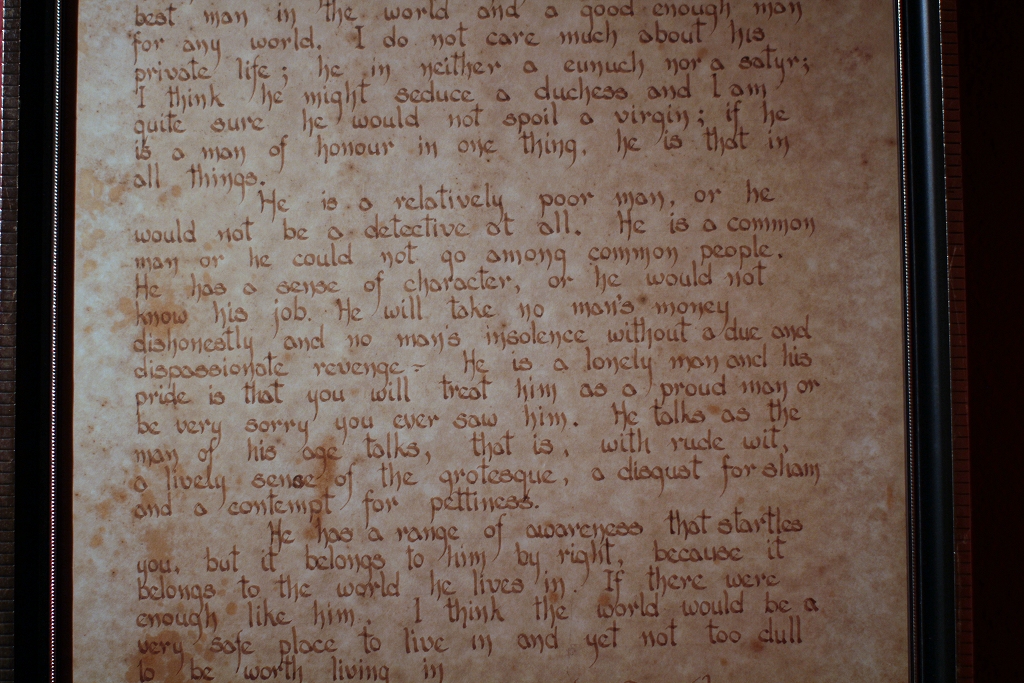 best man in the world and a good enough man
for any world. I do not care much about his
private life; he in neither a eunuch nor a satyr;
I think he might seduce a duchess and I am
quite sure he would not spoil a virgin; if he
is a man of honour in one thing, he is that in
all things.
He is a relatively poor man, or he
would not be a detective at all. He is a common
man or he could not go among common people.
He has a sense of character, or he would not
know his job. He will take no man's money
dishonestly and no man's insolence without a due and
dispassionate revenge - He is a lonely man and his
pride is that you will treat him as a proud man or
be very sorry you ever saw him. He talks as the
man of his age talks, that is, with rude wit,
a lively sense of the grotesque, a disgust for sham
and a contempt for pettiness.
He has a range of awareness that startles
you, but it belongs to him by right, because it
belongs to the world he lives in. If there were
enough like him, I think the world would be a
very safe place to live in and yet not too dull
to be worth living in